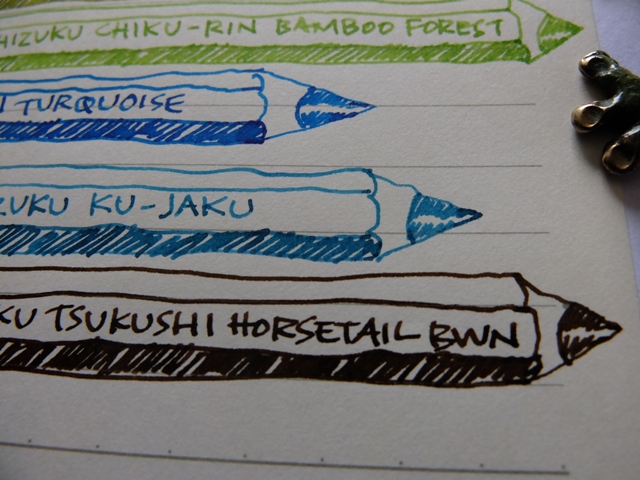 HIZUKU CHIKU-RIN BAMBOO FOREST
I TURQUOISE
ZUKU KU-JAKU
KU TSUKUSHI HORSETAIL BWN